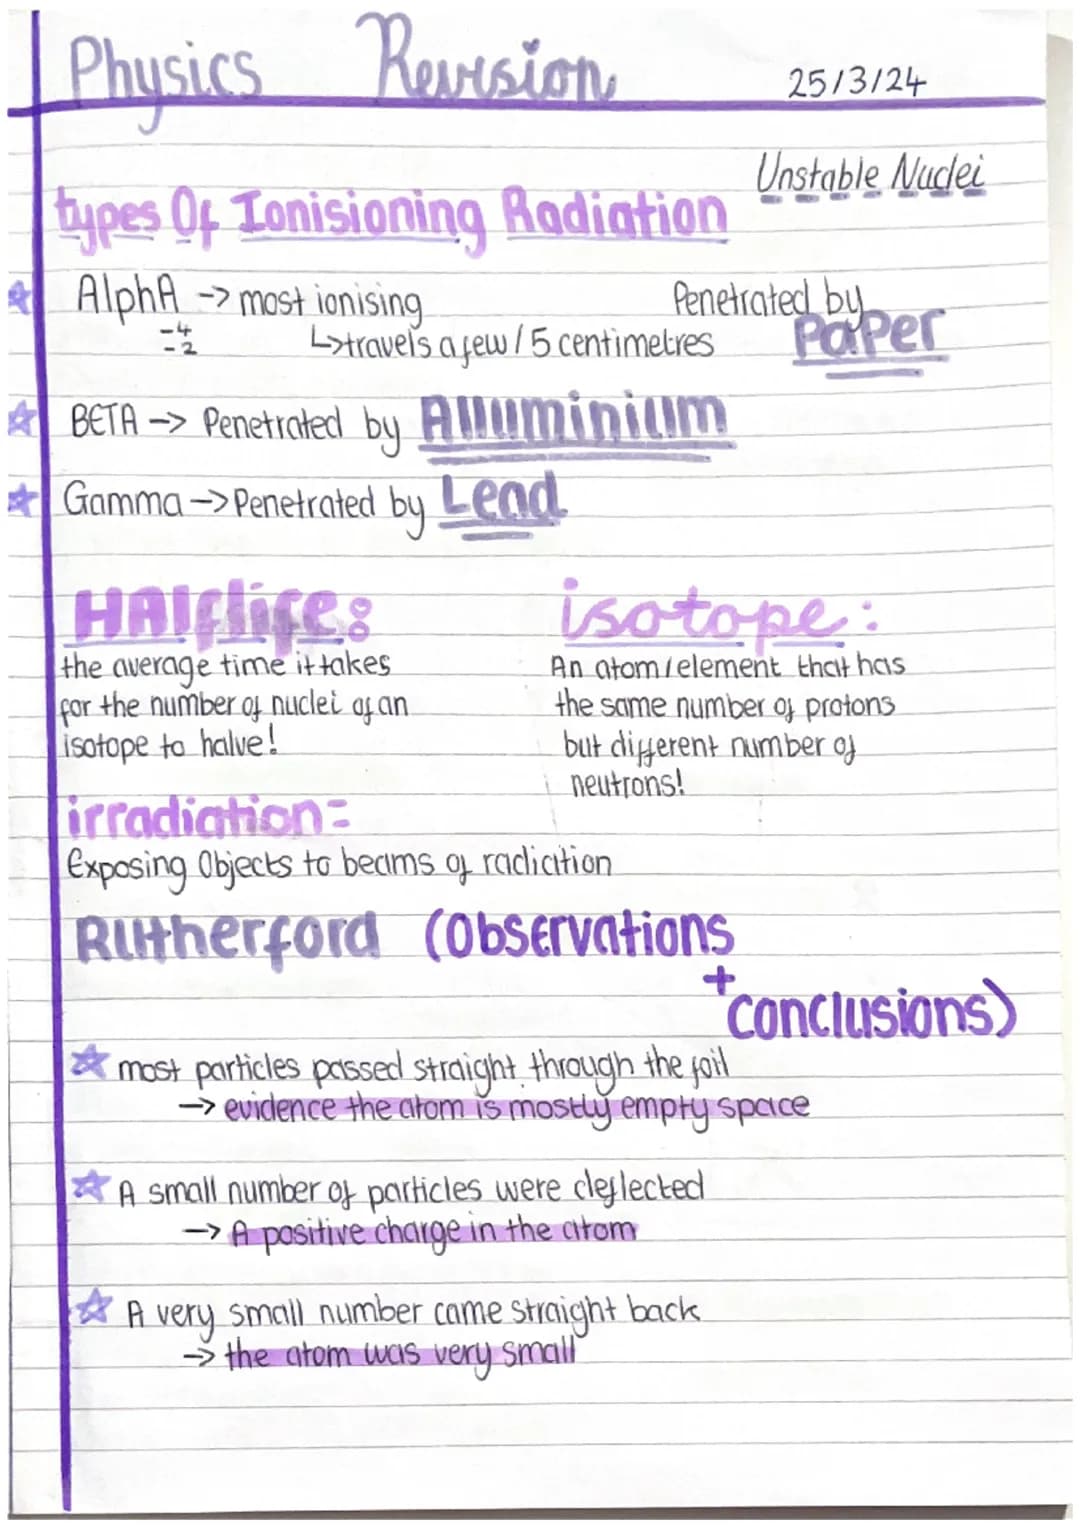 Physics Revision 25/3/24
Unstable Nuclei
types Of Ionisioning Radiation
AlphA -> most ionising Penetrated by
-4
-2
↳travels a few / 5 centimetres PaPer
BETA -> Penetrated by Alluminium
Gamma -> Penetrated by Lead
HAlflife: isotope:
the average time it takes An atom/element that has
for the number of nuclei of an the same number of protons
isotope to halve! but different number of
neutrons!
irradiation=
Exposing Objects to beams of radiation
Rutherford (Observations
+
conclusions)
☆ most particles passed straight through the foil
-> evidence the atom is mostly empty space
☆ A small number of particles were deflected
-> A positive charge in the atom
☆ A very small number came straight back
-> the atom was very small